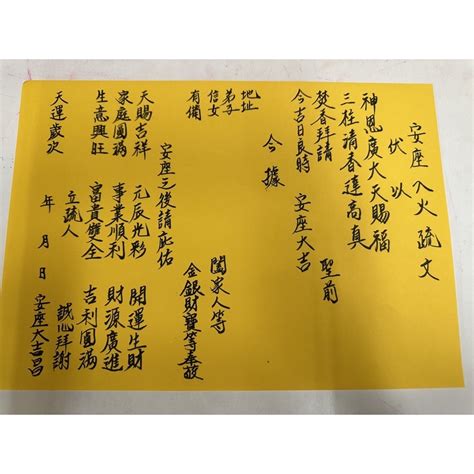 安座入火疏文
伏以
神恩廣大天賜福
三柱清香達高真
焚香拜請 聖前
今吉日良時 安座大吉
今據
地址
弟子
信女 闔家人等
有備 金銀財寶等奉敬
安座之後請庇佑
天賜吉祥 元辰光彩 開運生財
家庭圓滿 事業順利 財源廣進
生意興旺 富貴雙全 吉利圓滿
立疏人 誠心拜謝
天運歲次 年 月 日 安座大吉昌